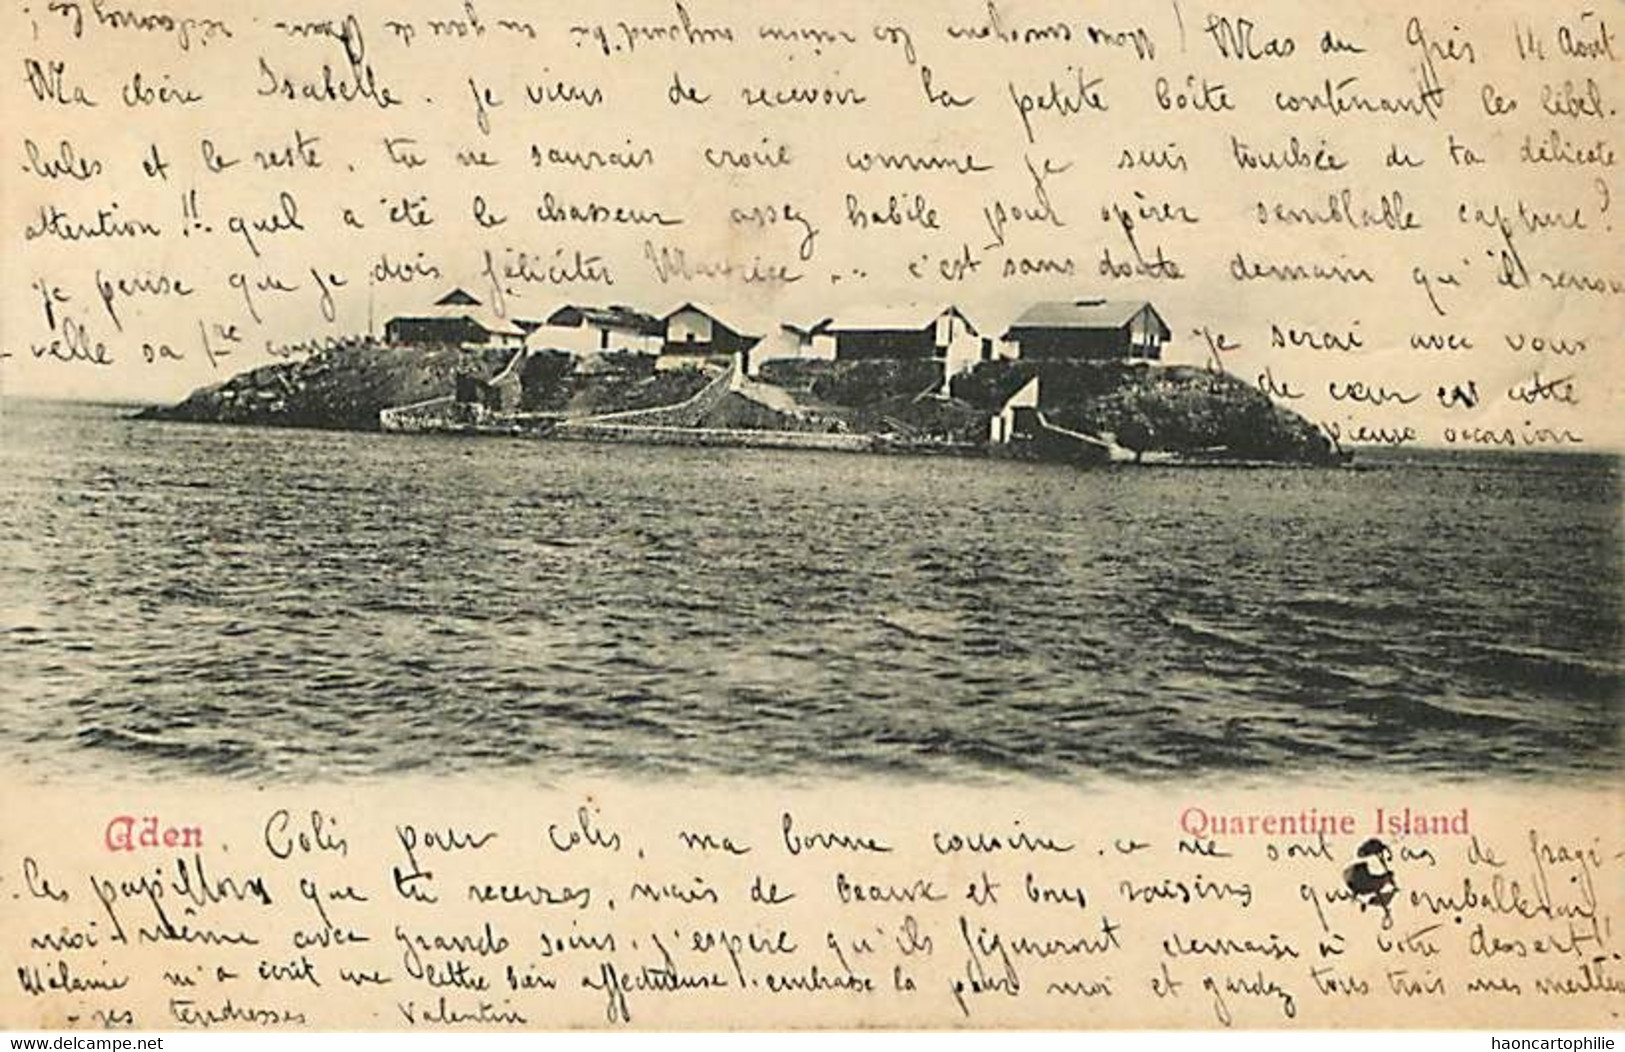 Mas du Grès 14 Août
Ma chère Isabelle. je viens de recevoir la petite boîte contenant les libel-
lules et le reste. tu ne saurais croire comme je suis touchée de ta délicate
attention !! quel a été le chasseur assez habile pour opérer semblable capture?
je pense que je dois féliciter Maurice ... c'est sans doute demain qu'il renou
-velle sa 1re commu
je serai avec vous
de cœur en cette
pieuse occasion
Aden
Quarentine Island
Colis pour colis, ma bonne cousine. ce ne sont pas de fragi-
-les papillons que tu recevras, mais de beaux et bons raisins que j'emballerai
moi-même avec grands soins. j'espère qu'ils figureront demain à votre dessert!
Mélanie m'a écrit une lettre bien affectueuse! embrasse la pour moi et gardez tous trois mes meilleu
-res tendresses Valentin
delcampe.net
haoncartophilie